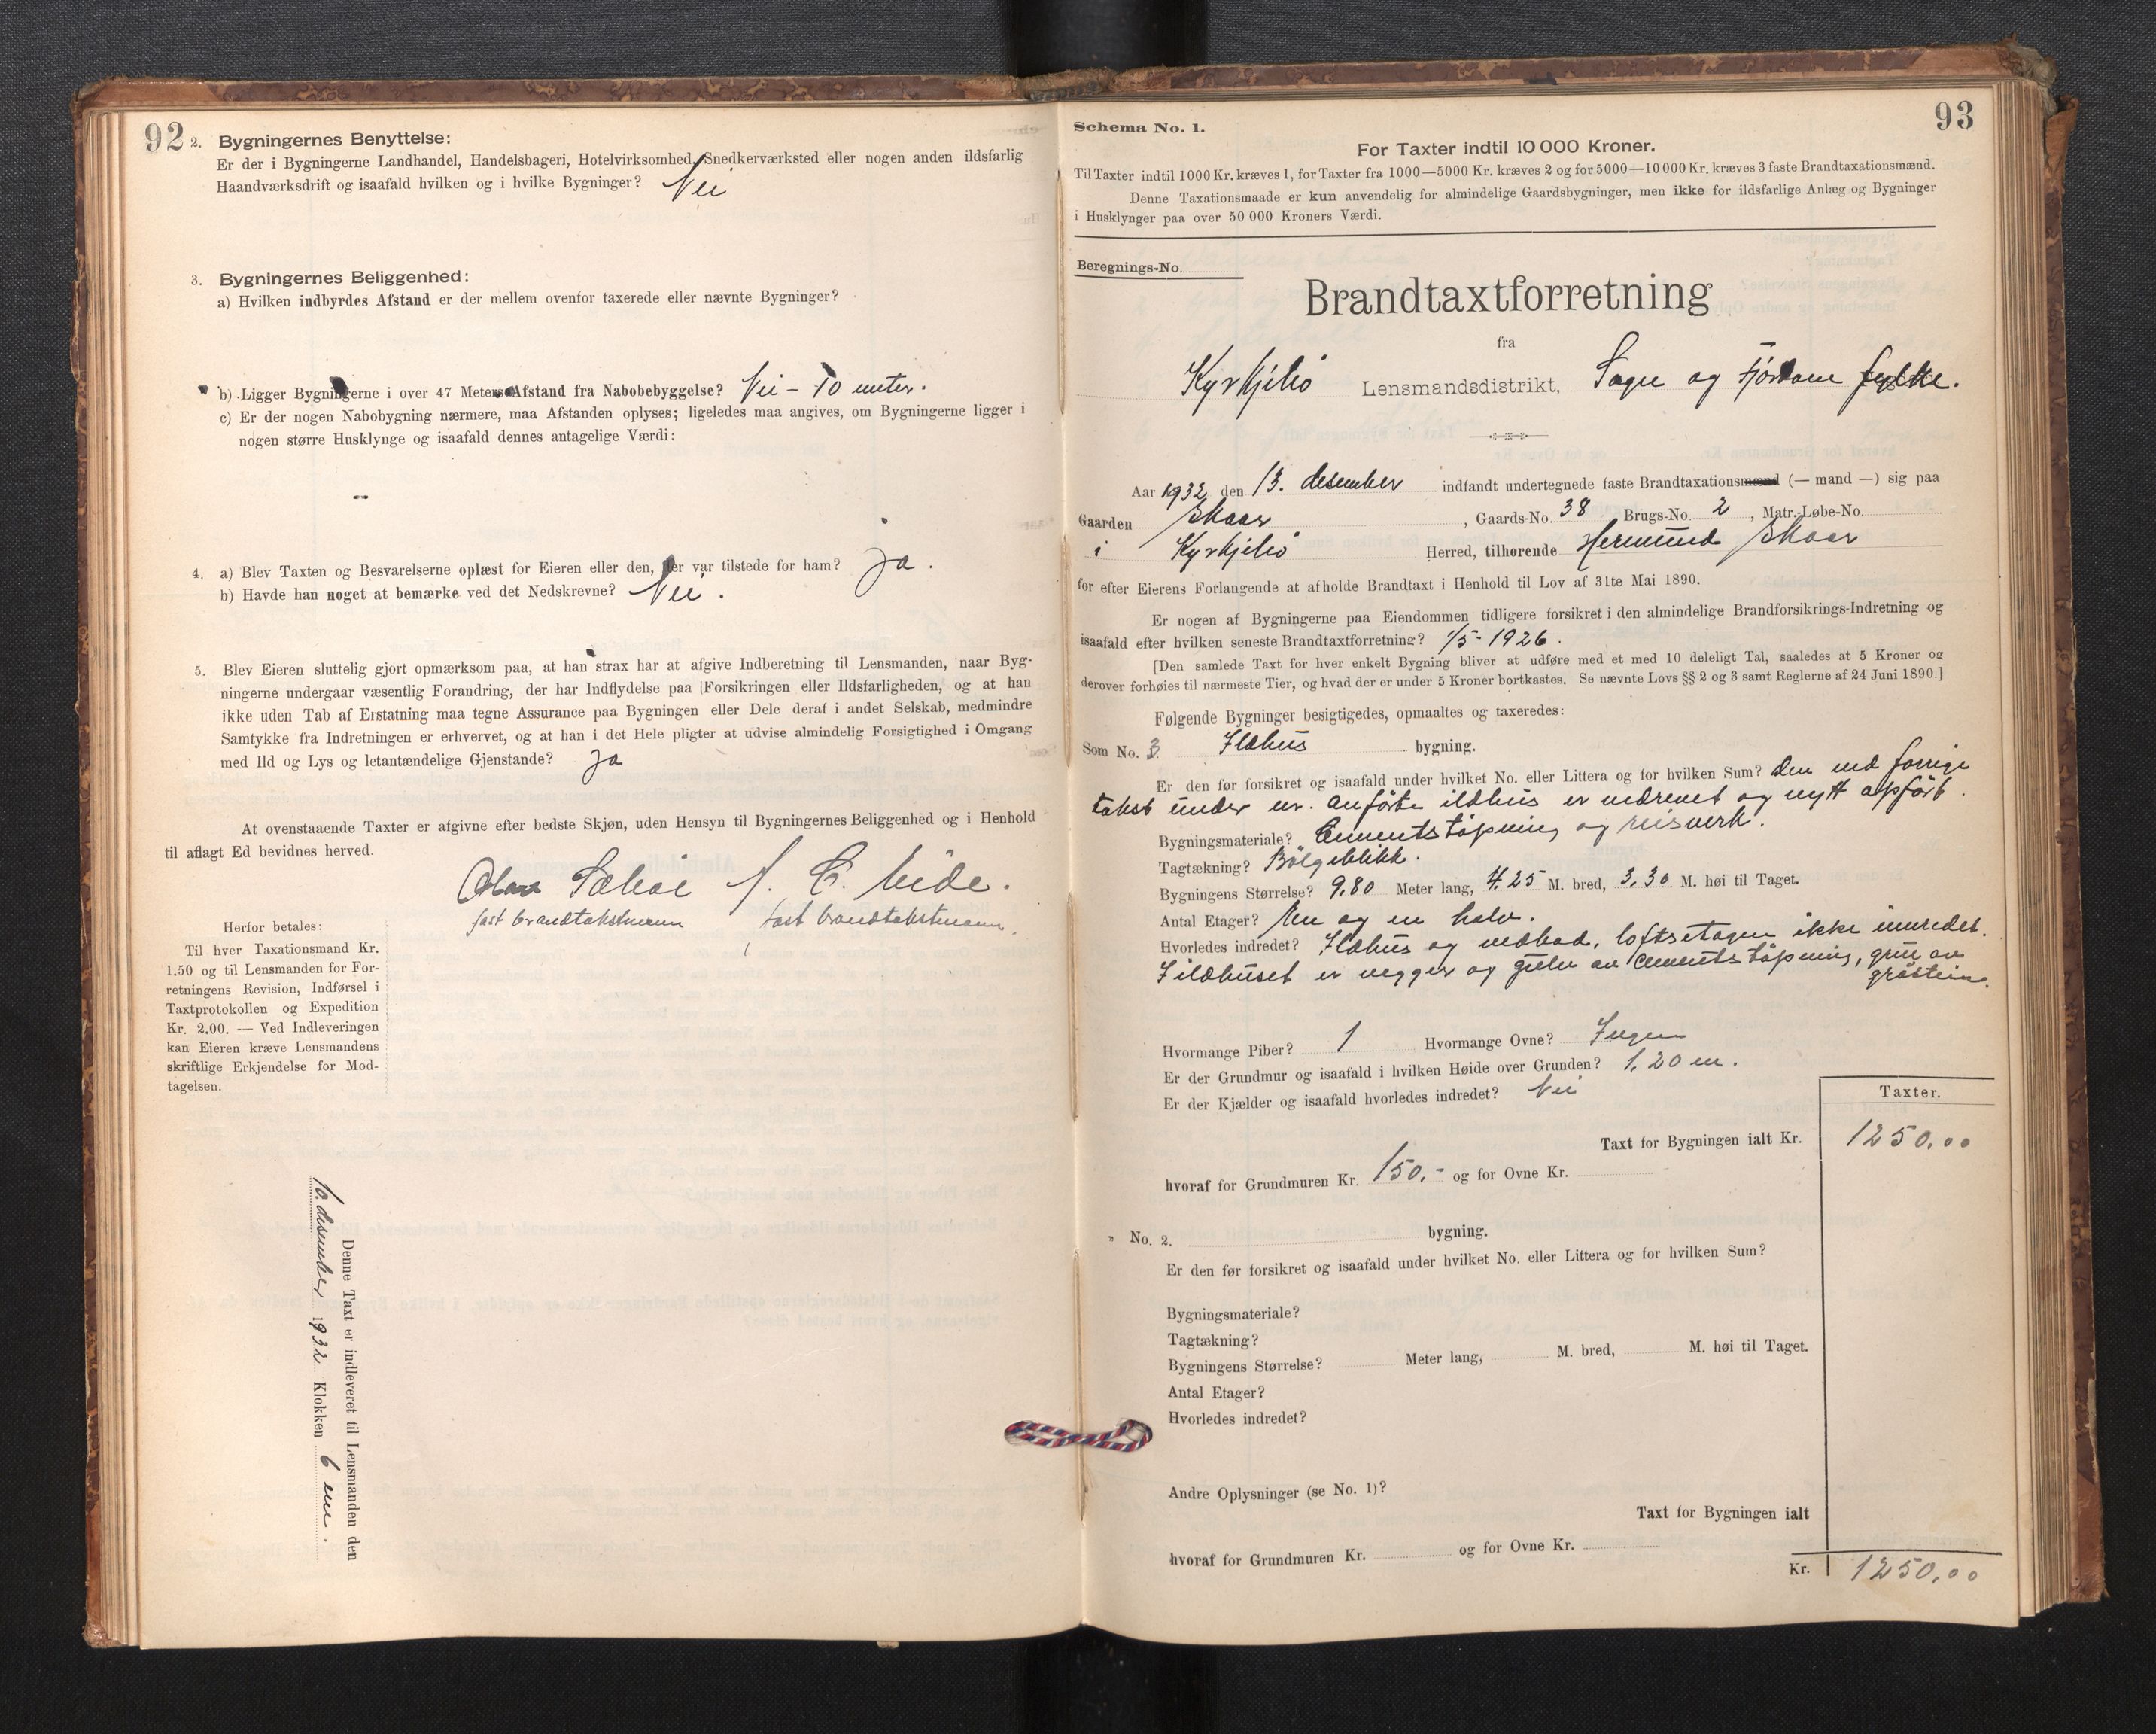 92
2. Bygningernes Benyttelse:
Er der i Bygningerne Landhandel, Handelsbageri, Hotelvirksomhed, Snedkerværksted eller nogen anden ildsfarlig
Haandværksdrift og isaafald hvilken og i hvilke Bygninger? Nei
3. Bygningernes Beliggenhed:
a) Hvilken indbyrdes Afstand er der mellem ovenfor taxerede eller nævnte Bygninger?
b) Ligger Bygningerne i over 47 Meters Afstand fra Nabobebyggelse? Nei - 10 meter.
c) Er der nogen Nabobygning nærmere, maa Afstanden oplyses; ligeledes maa angives, om Bygningerne ligger i
nogen større Husklynge og isaafald dennes antagelige Værdi:
4. a) Blev Taxten og Besvarelserne oplæst for Eieren eller den, der var tilstede for ham? Ja.
b) Havde han noget at bemærke ved det Nedskrevne? Nei.
5. Blev Eieren sluttelig gjort opmærksom paa, at han strax har at afgive Indberetning til Lensmanden, naar Byg-
ningerne undergaar væsentlig Forandring, der har Indflydelse paa Forsikringen eller Ildsfarligheden, og at han
ikke uden Tab af Erstatning maa tegne Assurance paa Bygningen eller Dele deraf i andet Selskab, medmindre
Samtykke fra Indretningen er erhvervet, og at han i det Hele pligter at udvise almindelig Forsigtighed i Omgang
med Ild og Lys og letantændelige Gjenstande? Ja
At ovenstaaende Taxter er afgivne efter bedste Skjøn, uden Hensyn til Bygningernes Beliggenhed og i Henhold
til aflagt Ed bevidnes herved.
Eide.
fast brandtakstmann fast brandtakstmann.
Herfor betales:
Til hver Taxationsmand Kr.
1.50 og til Lensmanden for For-
retningens Revision, Indførsel i
Taxtprotokollen og Expedition
Kr. 2.00. — Ved Indleveringen
kan Eieren kræve Lensmandens
skriftlige Erkjendelse for Mod-
tagelsen.
Denne Taxt er indleveret til Lensmanden den
10. desember 1932 Klokken 6 em.
93
Schema No. 1.
For Taxter indtil 10 000 Kroner.
Til Taxter indtil 1000 Kr. kræves 1, for Taxter fra 1000—5000 Kr. kræves 2 og for 5000—10000 Kr. kræves 3 faste Brandtaxationsmænd.
Denne Taxationsmaade er kun anvendelig for almindelige Gaardsbygninger, men ikke for ildsfarlige Anlæg og Bygninger
i Husklynger paa over 50 000 Kroners Værdi.
Beregnings-No.
Brandtaxtforretning
fra
Kyrkjebø Lensmandsdistrikt, Sogn og Fjordane fylke.
Aar 1932, den 13. desember indfandt undertegnede faste Brandtaxationsmænd (— mand —) sig paa
Gaarden Skaar, Gaards-No. 38, Brugs-No. 2, Matr.-Løbe-No.
i Kyrkjebø Herred, tilhørende Hermund Skaar
for efter Eierens Forlangende at afholde Brandtaxt i Henhold til Lov af 31te Mai 1890.
Er nogen af Bygningerne paa Eiendommen tidligere forsikret i den almindelige Brandforsikrings-Indretning og
isaafald efter hvilken seneste Brandtaxtforretning? 1/5-1926.
[Den samlede Taxt for hver enkelt Bygning bliver at udføre med et med 10 deleligt Tal, saaledes at 5 Kroner og
derover forhøies til nærmeste Tier, og hvad der er under 5 Kroner bortkastes. Se nævnte Lovs §§ 2 og 3 samt Reglerne af 24 Juni 1890.]
Følgende Bygninger besigtigedes, opmaaltes og taxeredes:
Som No. 3 Ildhus bygning.
Er den før forsikret og isaafald under hvilket No. eller Littera og for hvilken Sum? Den ved forrige
takst under nr. anførte ildhus er nedrevet og nytt opført.
Bygningsmateriale? Cementstøpning og reisverk.
Tagtækning? Bølgeblikk.
Bygningens Størrelse? 9.80 Meter lang, 4.25 M. bred, 3.30 M. høi til Taget.
Antal Etager? En og en halv.
Hvorledes indredet? Ildhus og vedbod, loftsetagen ikke innredet.
I ildhuset er vegger og gulv av cementstøpning, grue av
gråstein.
Hvormange Piber? 1 Hvormange Ovne? Ingen
Er der Grundmur og isaafald i hvilken Høide over Grunden? 1,20 m.
Er der Kjælder og isaafald hvorledes indredet? Nei
Taxter.
Taxt for Bygningen ialt Kr. 1250,00
hvoraf for Grundmuren Kr. 150,- og for Ovne Kr.
" No. 2. bygning.
Er den før forsikret og isaafald under hvilket No. eller Littera og for hvilken Sum?
Bygningsmateriale?
Tagtækning?
Bygningens Størrelse? Meter lang, M. bred, M. høi til Taget.
Antal Etager?
Hvorledes indredet?
Andre Oplysninger (se No. 1)?
Taxt for Bygningen ialt
hvoraf for Grundmuren Kr. og for Ovne Kr.
Kr. 1250,00